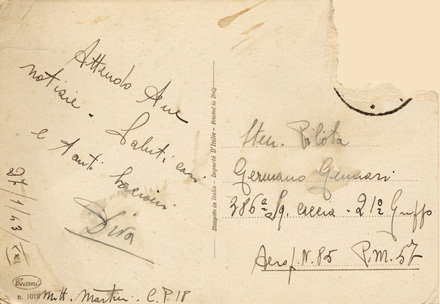 Attendo Tue
notizie. Saluti cari
e tanti bacioni
Diva
27/1/43/XXI
Ten. Pilota
Germano Gennari
386ª Sq. caccia - 21º Gruppo
Aerop. N. 85 P.M. 57
Stampato in Italia - Imprimé D'Italie - Printed in Italy
Cecami
n. 1013
Mitt. Martini C.P. 18